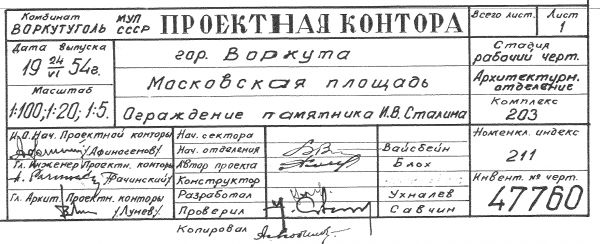 Комбинат ВОРКУТУГОЛЬ
МУП СССР
ПРОЕКТНАЯ КОНТОРА
Всего лист.
Лист 1
Дата выпуска
19 24/VI 54г.
Масштаб
1:100; 1:20; 1:5.
гор. Воркута
Московская площадь
Ограждение памятника И.В. Сталина
Стадия
рабочий черт.
Архитектурн. отделение
Комплекс
203
И.О. Нач. Проектной конторы
/Афиногенов/
Гл. Инженер Проектн. конторы
/Рачинский/
Гл. Архит. Проектн. конторы
/Лунев/
Нач. сектора
Нач. отделения Вайсбейн
Автор проекта Блох
Конструктор
Разработал Ухналев
Проверил Савчин
Копировал
Номенкл. индекс
211
Инвент. № черт.
47760